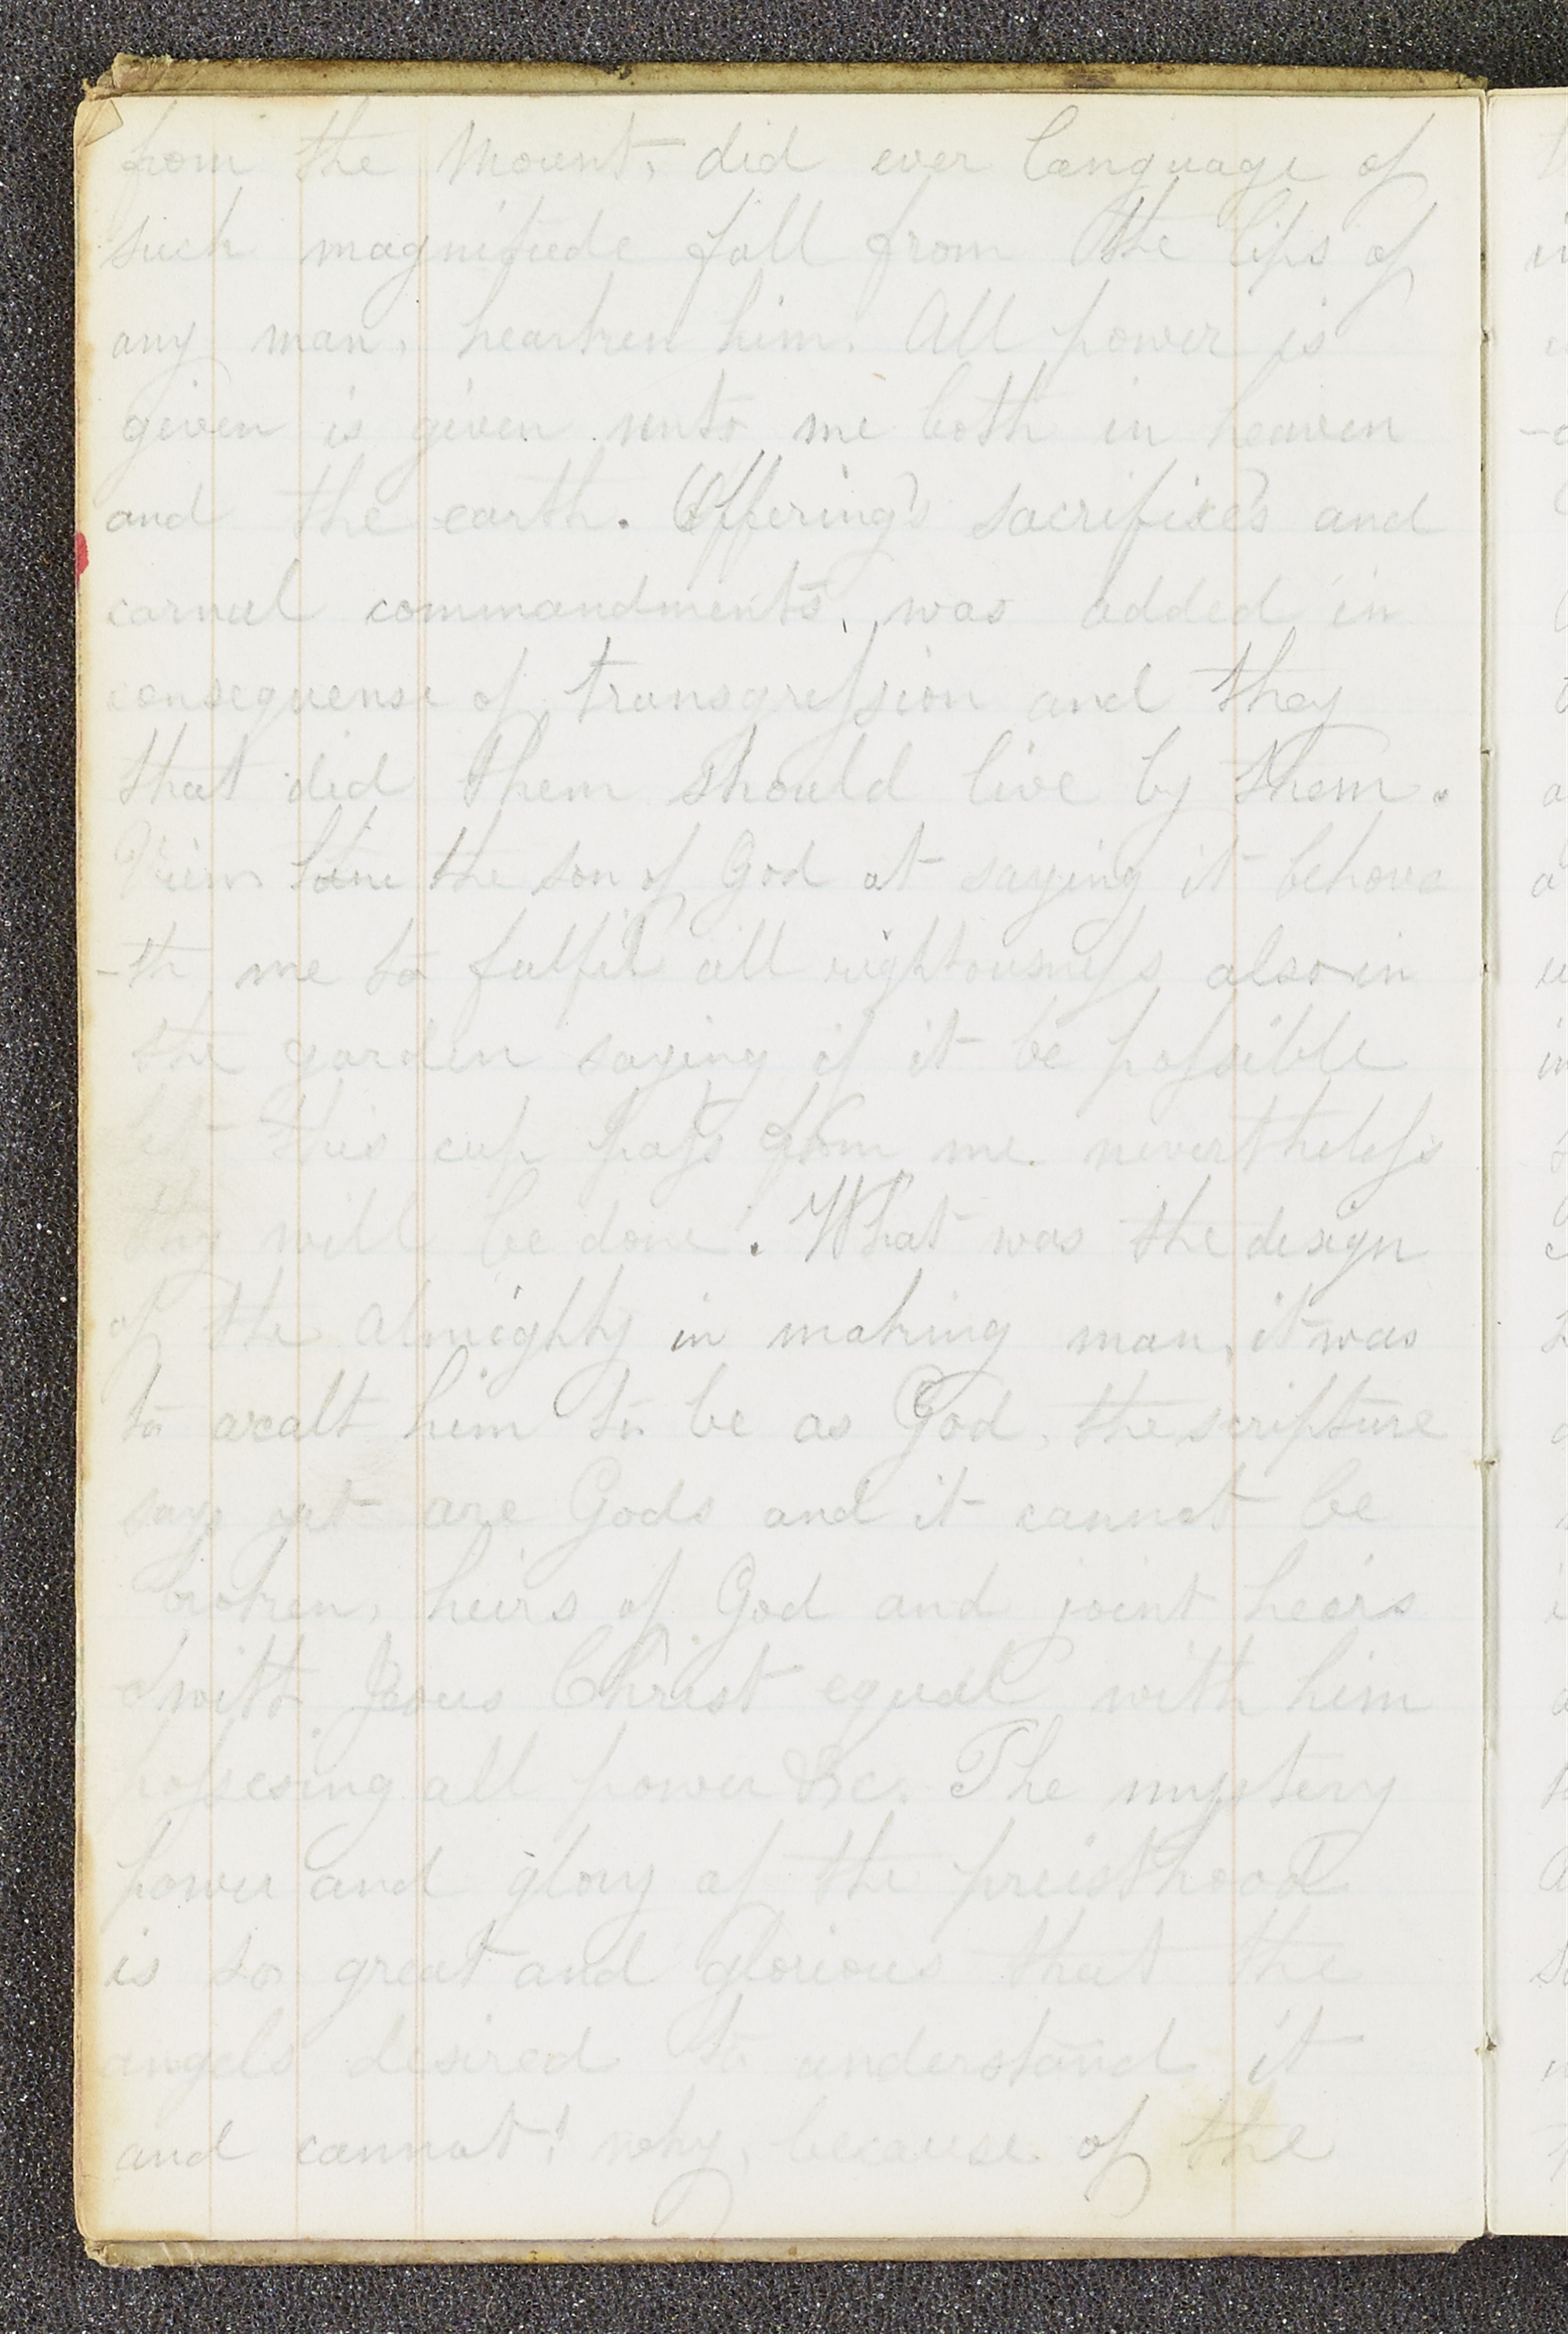 from the Mount, did ever language of
such magnitude fall from the lips of
any man, hearken him. All power is
given is given unto me both in heaven
and the earth. Offering's sacrifixe's and
carnel commandments, was added in
consequense of transgression and they
that did them should live by them.
View the son of God at saying it behove
-th me to fulfil all rightousness also in
the garden saying if it be possible
let this cup pass from me nevertheless
thy will be done. What was the design
of the Almighty in making man, it was
to axalt him to be as God, the scripture
says are Gods and it cannot be
broken, heirs of God and joint heirs
with Jesus Christ equal with him
possesing all power &c. The mystery
power and glory of the preisthood
is so great and glorious that the
angels desired to understand it
and cannot! why, because of the